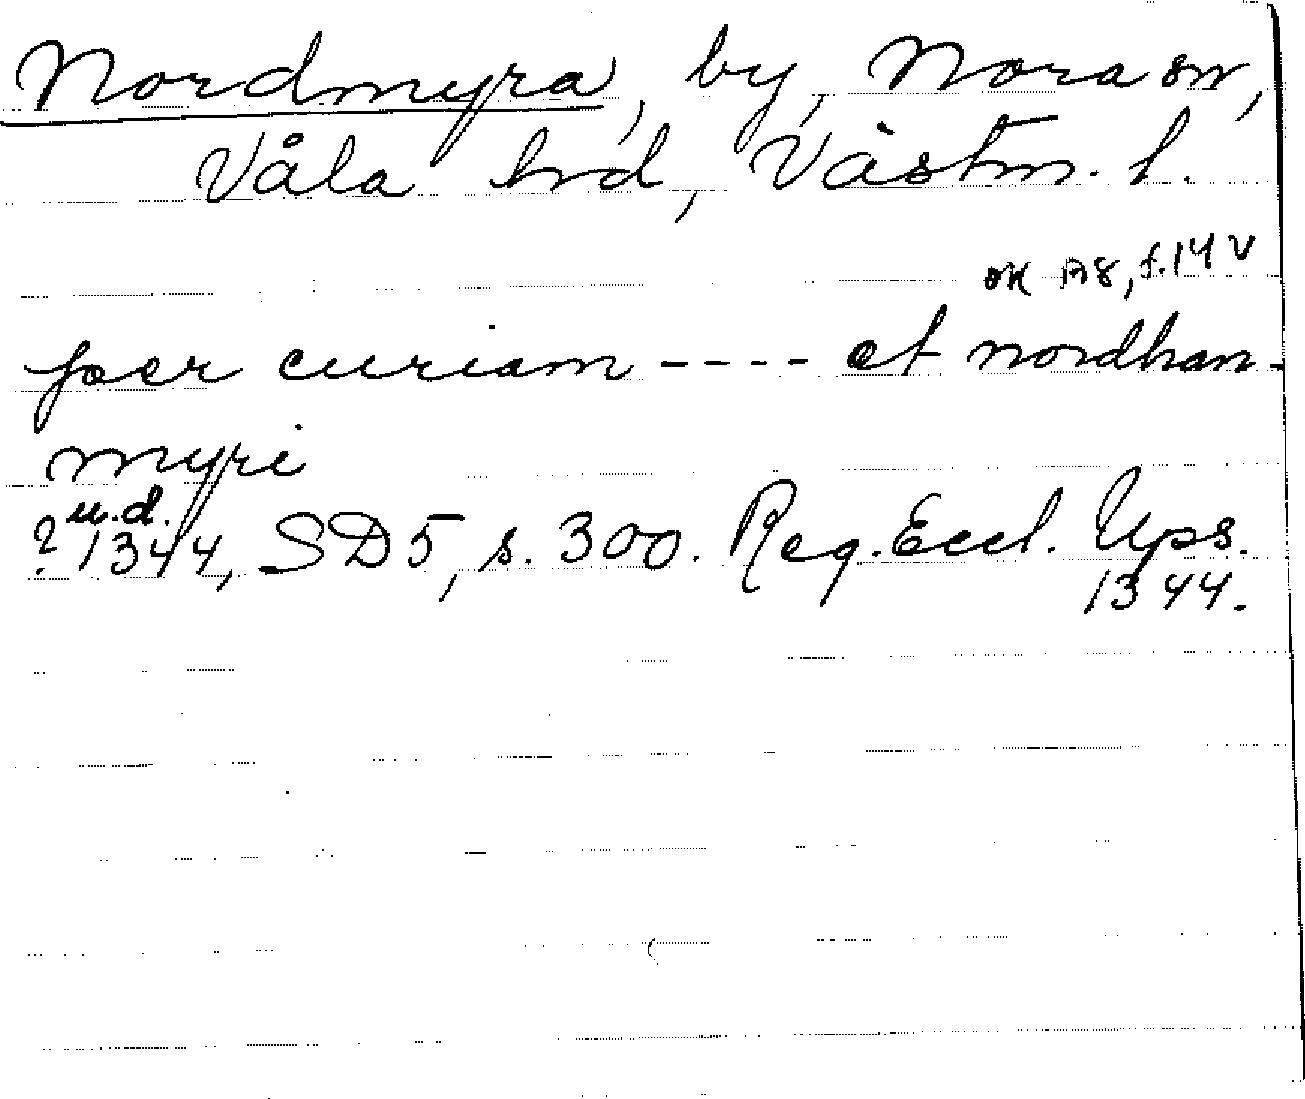 Nordmyra, by, Nora sn,
Våla hd, Västm. l.
or A8, f. 14 v
per curiam ---- et nordhan-
myri
u.d.
? 1344, SD5, s. 300. Reg. Eccl. Ups.
1344.